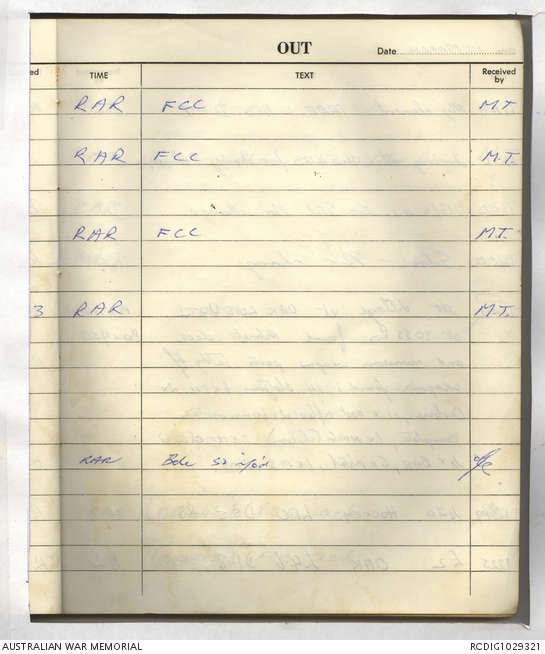 OUT
Date
ed TIME TEXT Received by
RAR FCC M.T.
RAR FCC M.T.
RAR FCC M.T.
3 RAR M.T.
RAR Bde
AUSTRALIAN WAR MEMORIAL RCDIG1029321